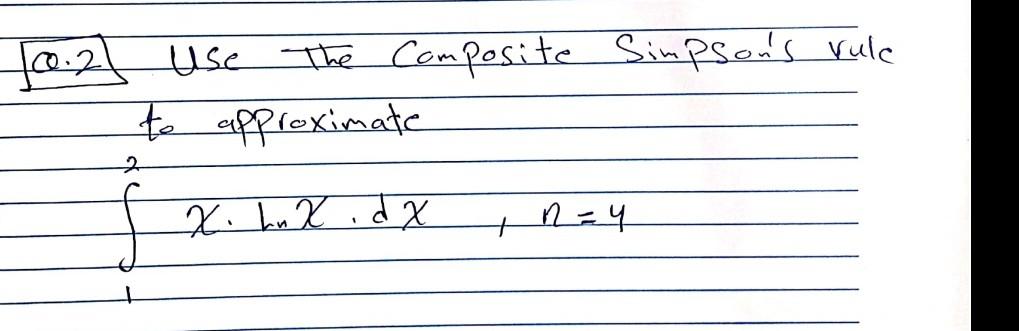 Q.2 Use The Composite Simpson's rule
to approximate
2
∫ x. Ln x . dx , n = 4
1